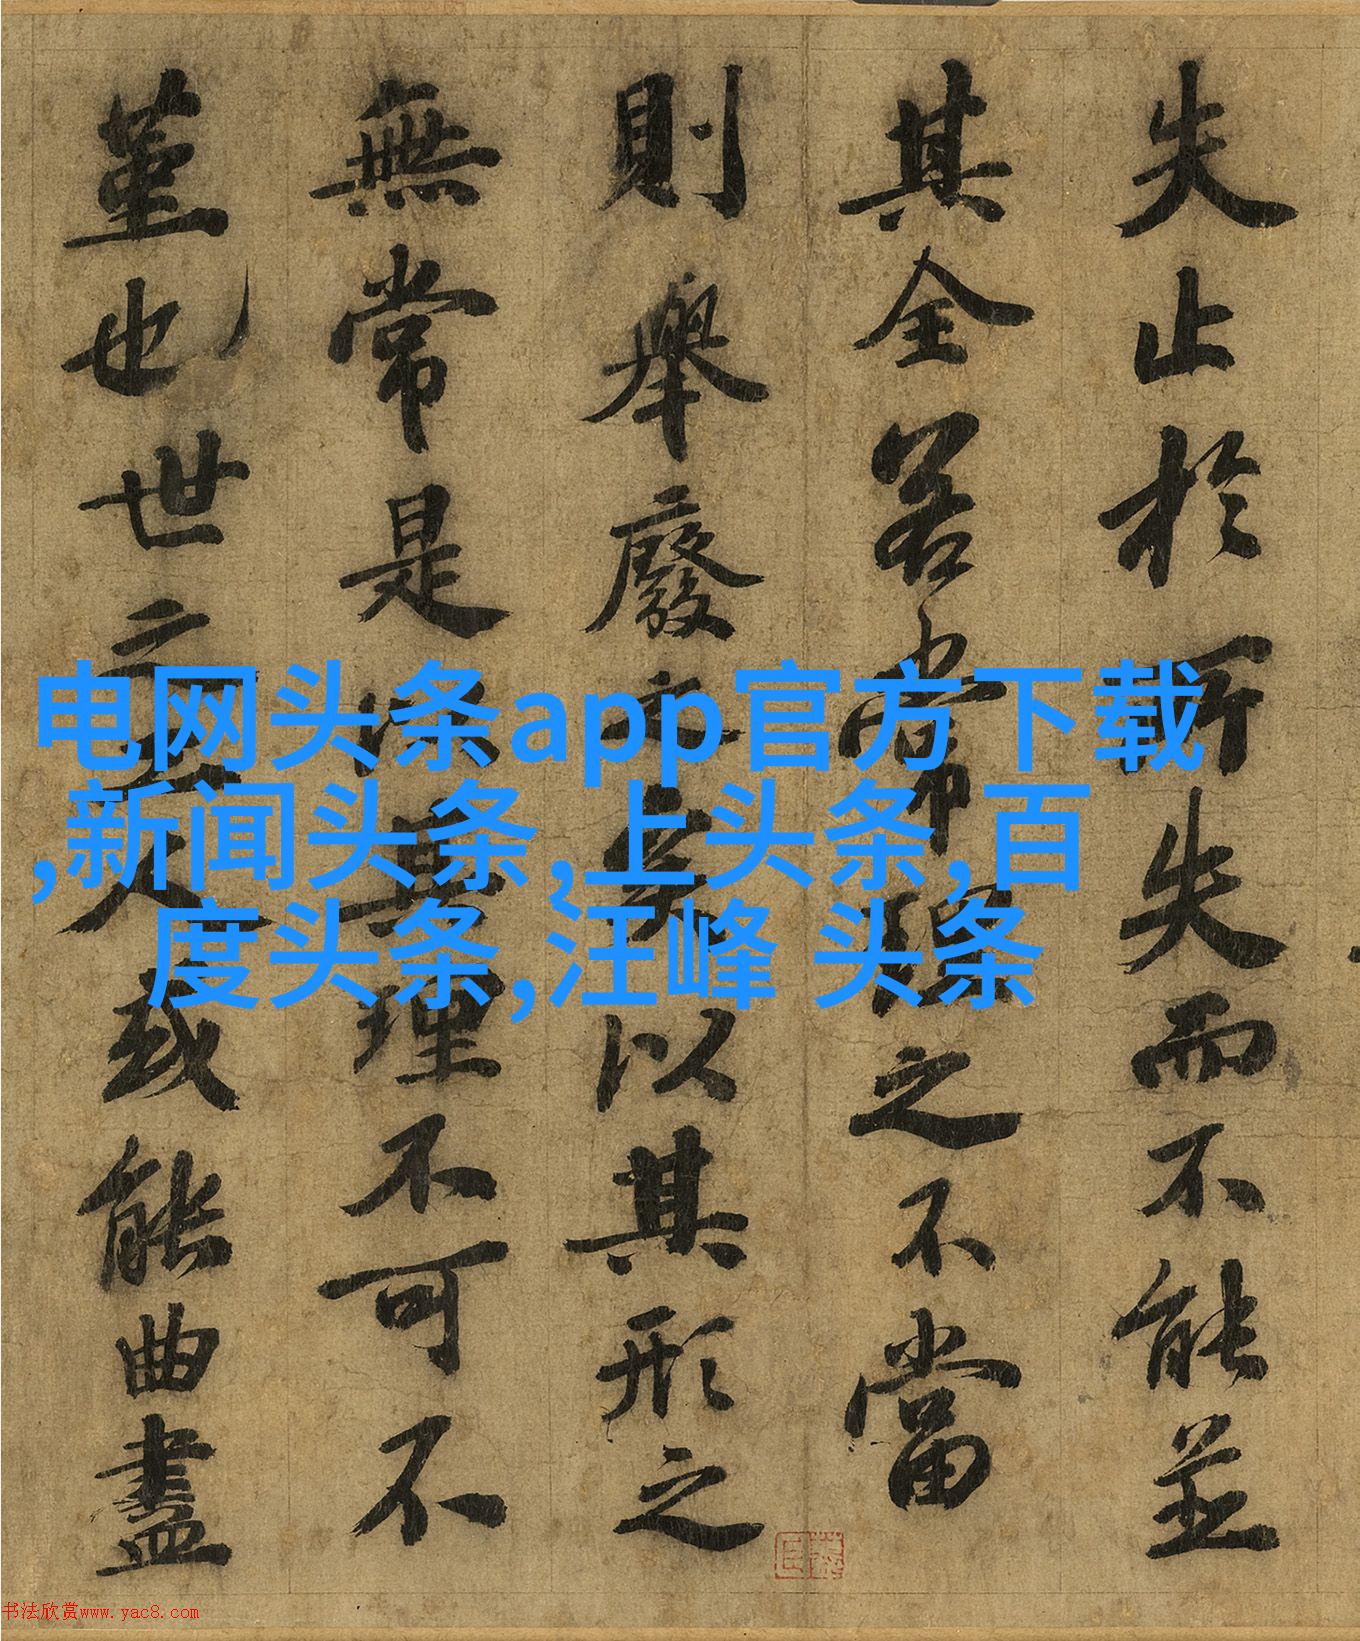 失止於所失而不能並
其全若常理之不當
則舉廢之矣以其形之
無常是以其理不可不
堇也世之工人或能曲盡
电网头条app官方下载
,新闻头条,上头条,百
度头条,汪峰 头条
书法欣赏www.yac8.com